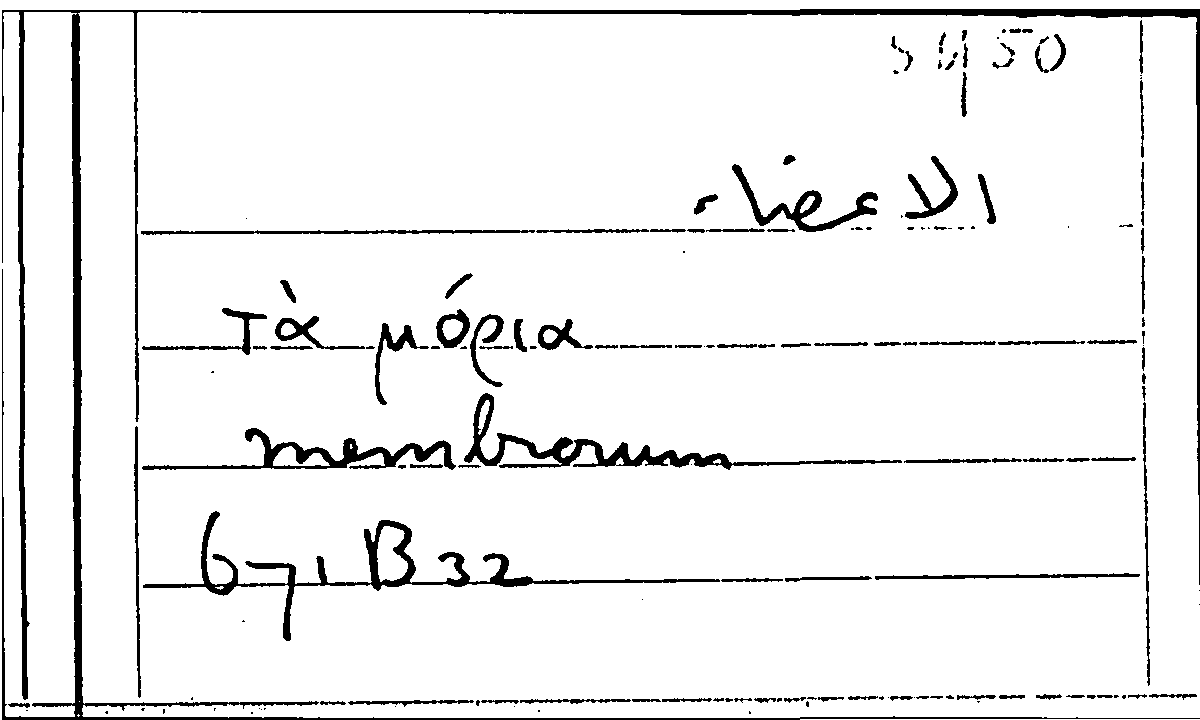 الاعضاء
τὰ μόρια
membrorum
671 B 32